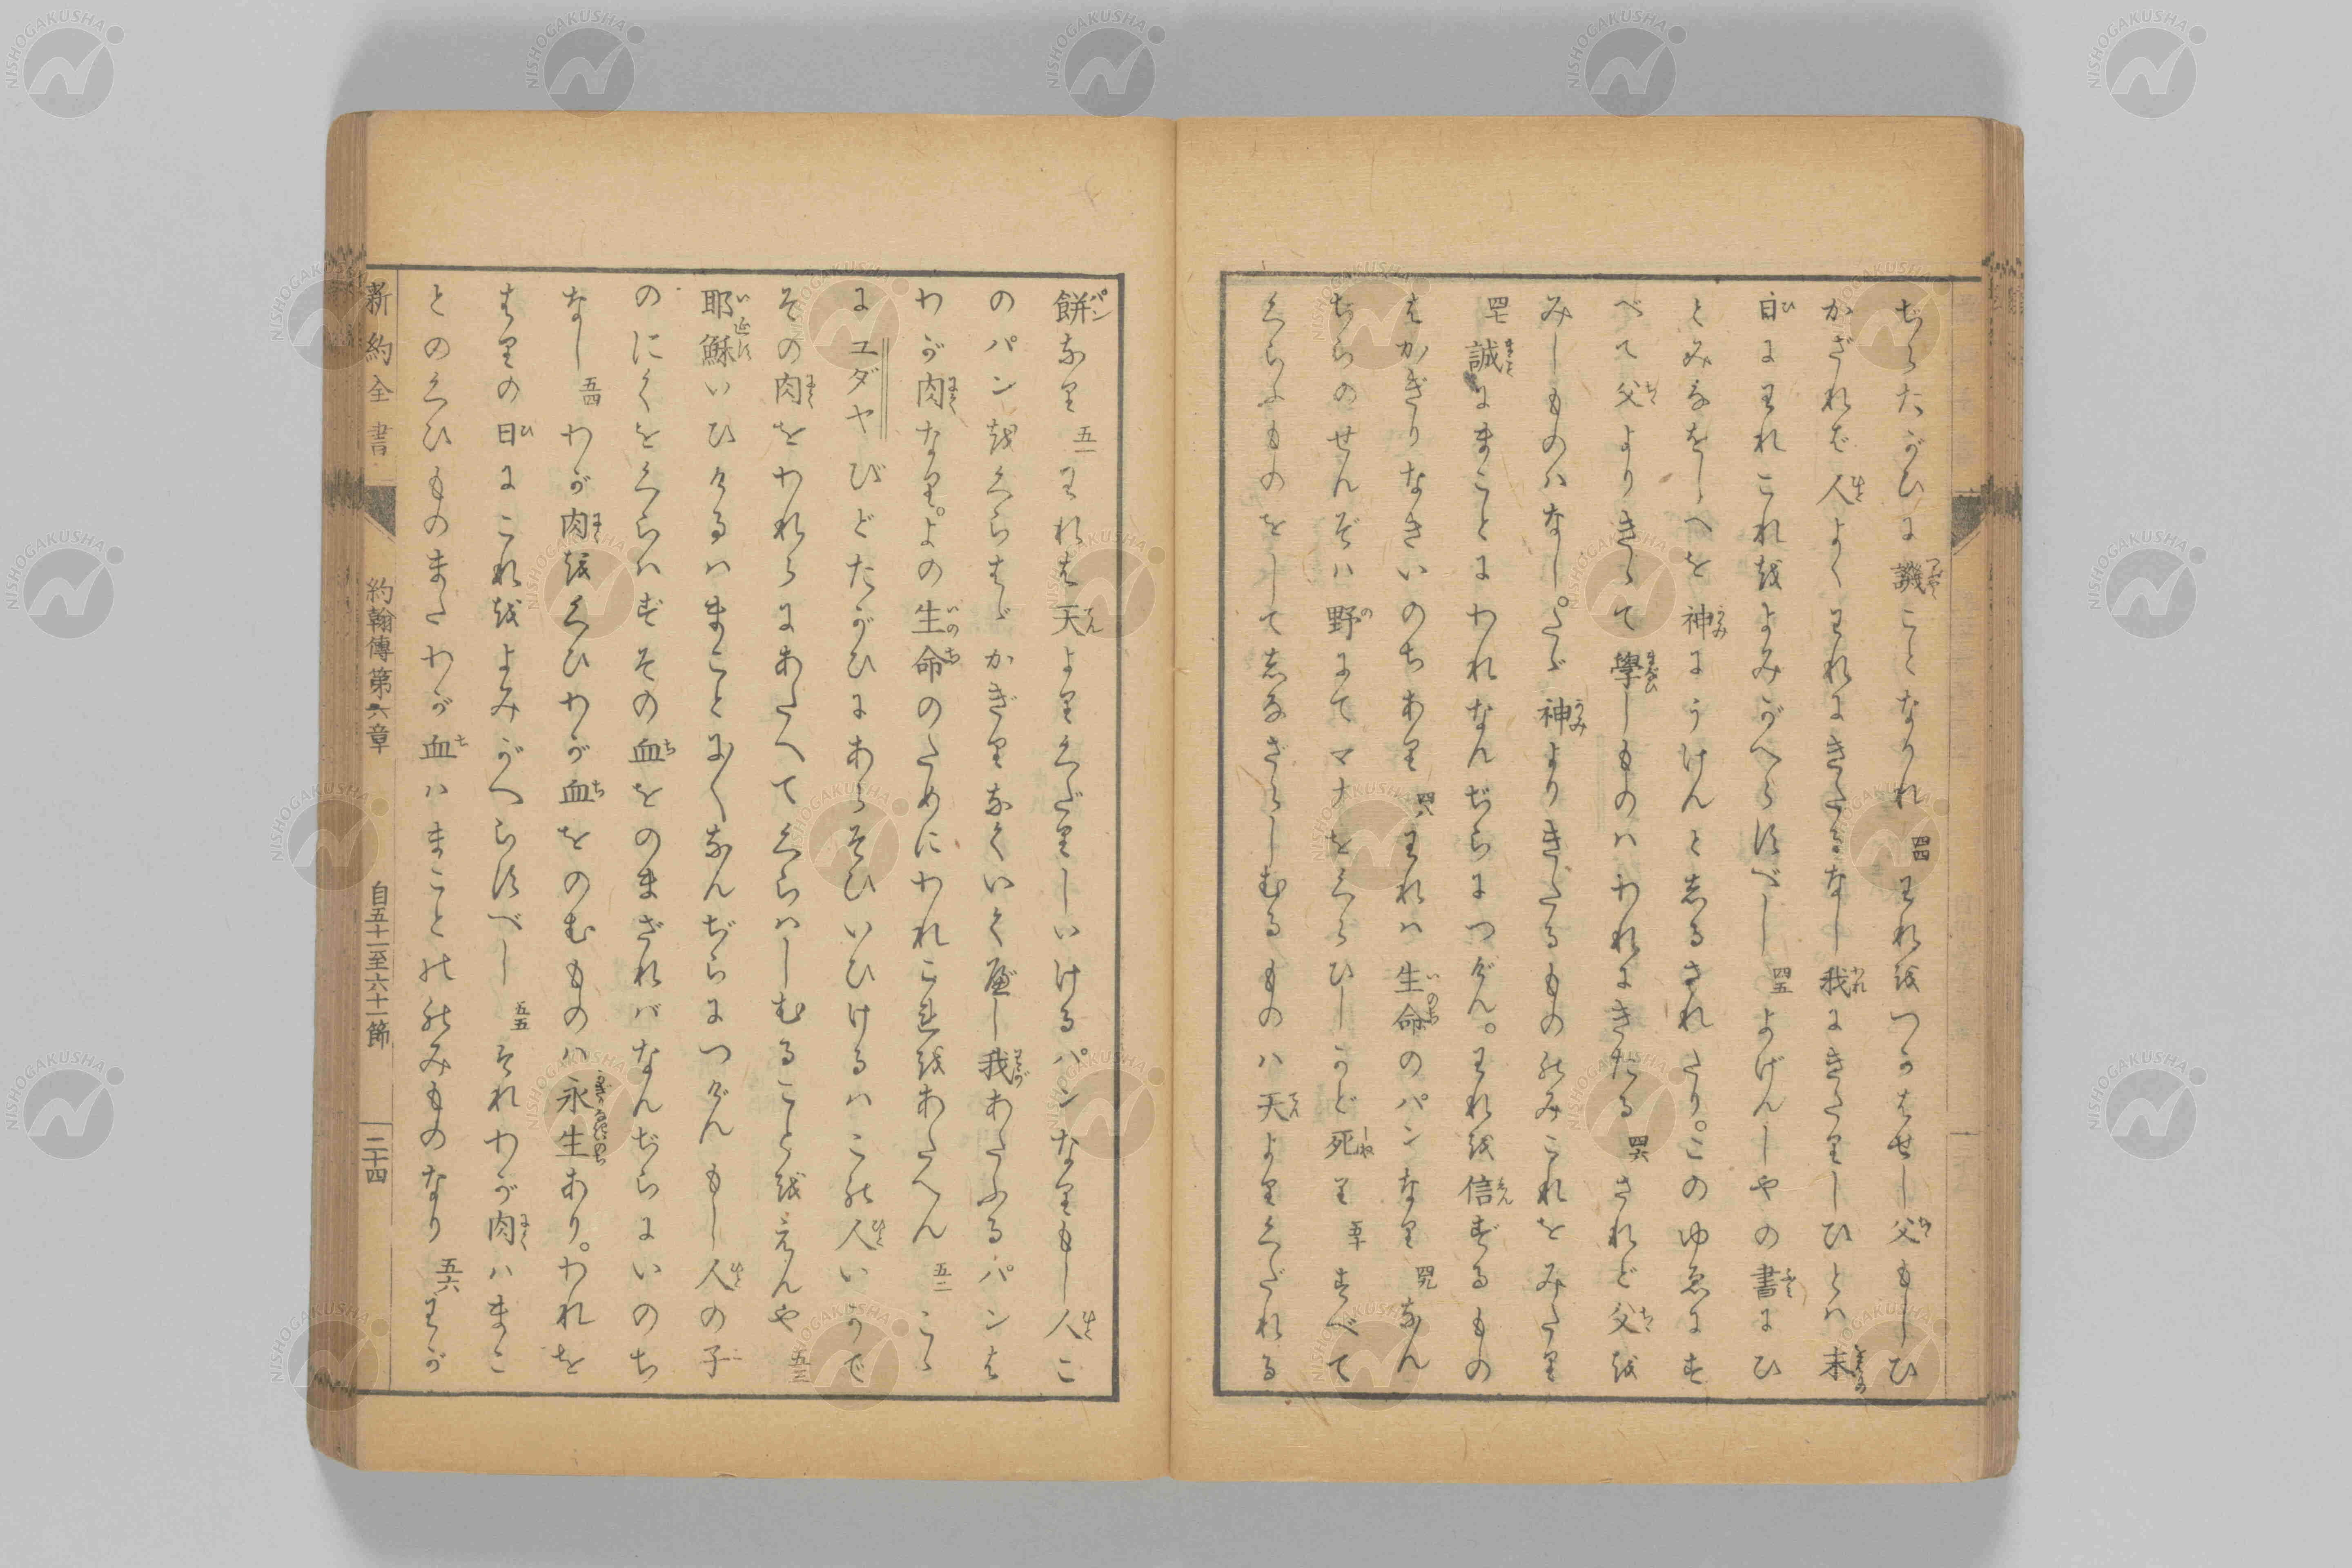 ぢらたがひに譏ことなかれ 四四 われをつかはせし父もしひ
かざれば人よくわれにきたるなし我にきたりしひとは末
日にわれこれをよみがへらすべし 四五 よげんしやの書にひ
とみなをしへを神にうけんとしるされたり。このゆゑにす
べて父よりきゝて學しものハわれにきたる 四六 されど父を
みしものハなし。たゞ神よりきたるもののみこれをみたり
四七 誠にまことにわれなんぢらにつげん。われを信ずるもの
はかぎりなきいのちあり 四八 われハ生命のパンなり 四九 なん
ぢらのせんぞハ野にてマナをくらひしかど死り 五十 すべて
くらふものをして志なざらしむるものハ天よりくだれる
餅なり 五一 われは天よりくだりしいけるパンなりもし人こ
のパンをくらはゞかぎりなくいく應し我あたふるパンは
わが肉なり。よの生命のためにわれこれをあたへん 五二 こゝ
にユダヤびとたがひにあらそひいひけるハこの人いかで
その肉をわれらにあたへてくらハしむることをえんや 五三
耶穌いひけるハまことにまことになんぢらにつげんもし人の子
のにくをくらハずその血をのまざれバなんぢらにいのち
なし 五四 わが肉をくひわが血をのむものハ永生あり。われを
はりの日にこれをよみがへらすべし 五五 それわが肉ハまこ
とのくひものまたわが血ハまことののみものなり 五六 わが
新約全書 約翰傳第六章 自五十一至六十一節 二十四